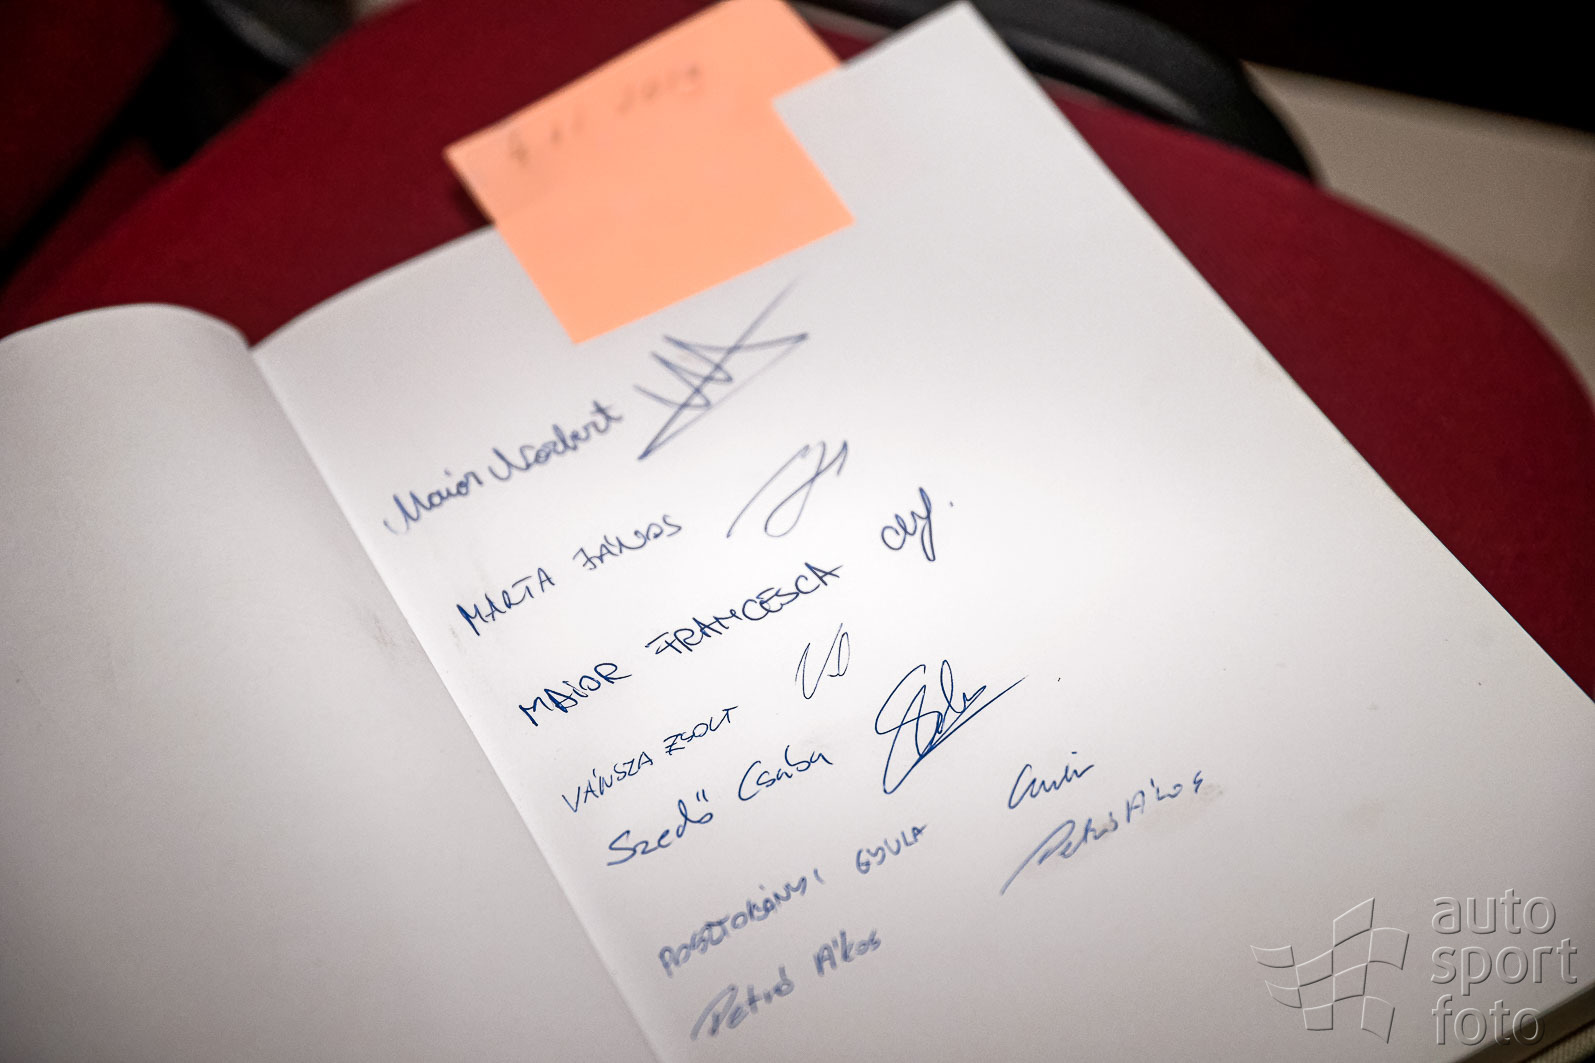 Maior Norbert
MARTA JÁNOS
MAIOR FRANCESCA
VÁNSZA ZSOLT
Szedő Csaba
POSZTOBÁNYI GYULA
Petró Ákos Petró Ákos
auto
sport
foto